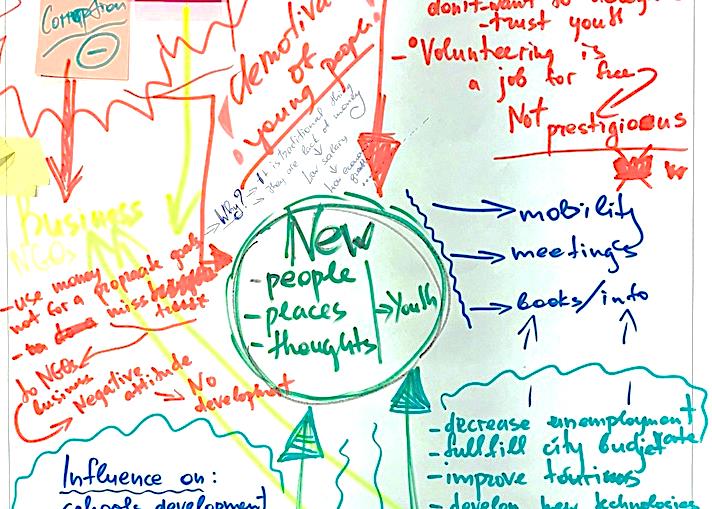 Corruption
demotiva
of
young people
don't want to
- trust youth
- Volunteering is
a job for free
Not prestigious
Why?
It is traditional thing
They are lack of money
low salary
Business
NGOs
- use money
not for a propriate goals
- to miss
trust
to NGOs
business
Negative
attitude
No
development
New
- people
- places
- thoughts
Youth
mobility
meetings
books/info
- decrease unemployment
rate
- fullfill city budjet
- improve tourizm
- develop new technologies
Influence on:
schools development